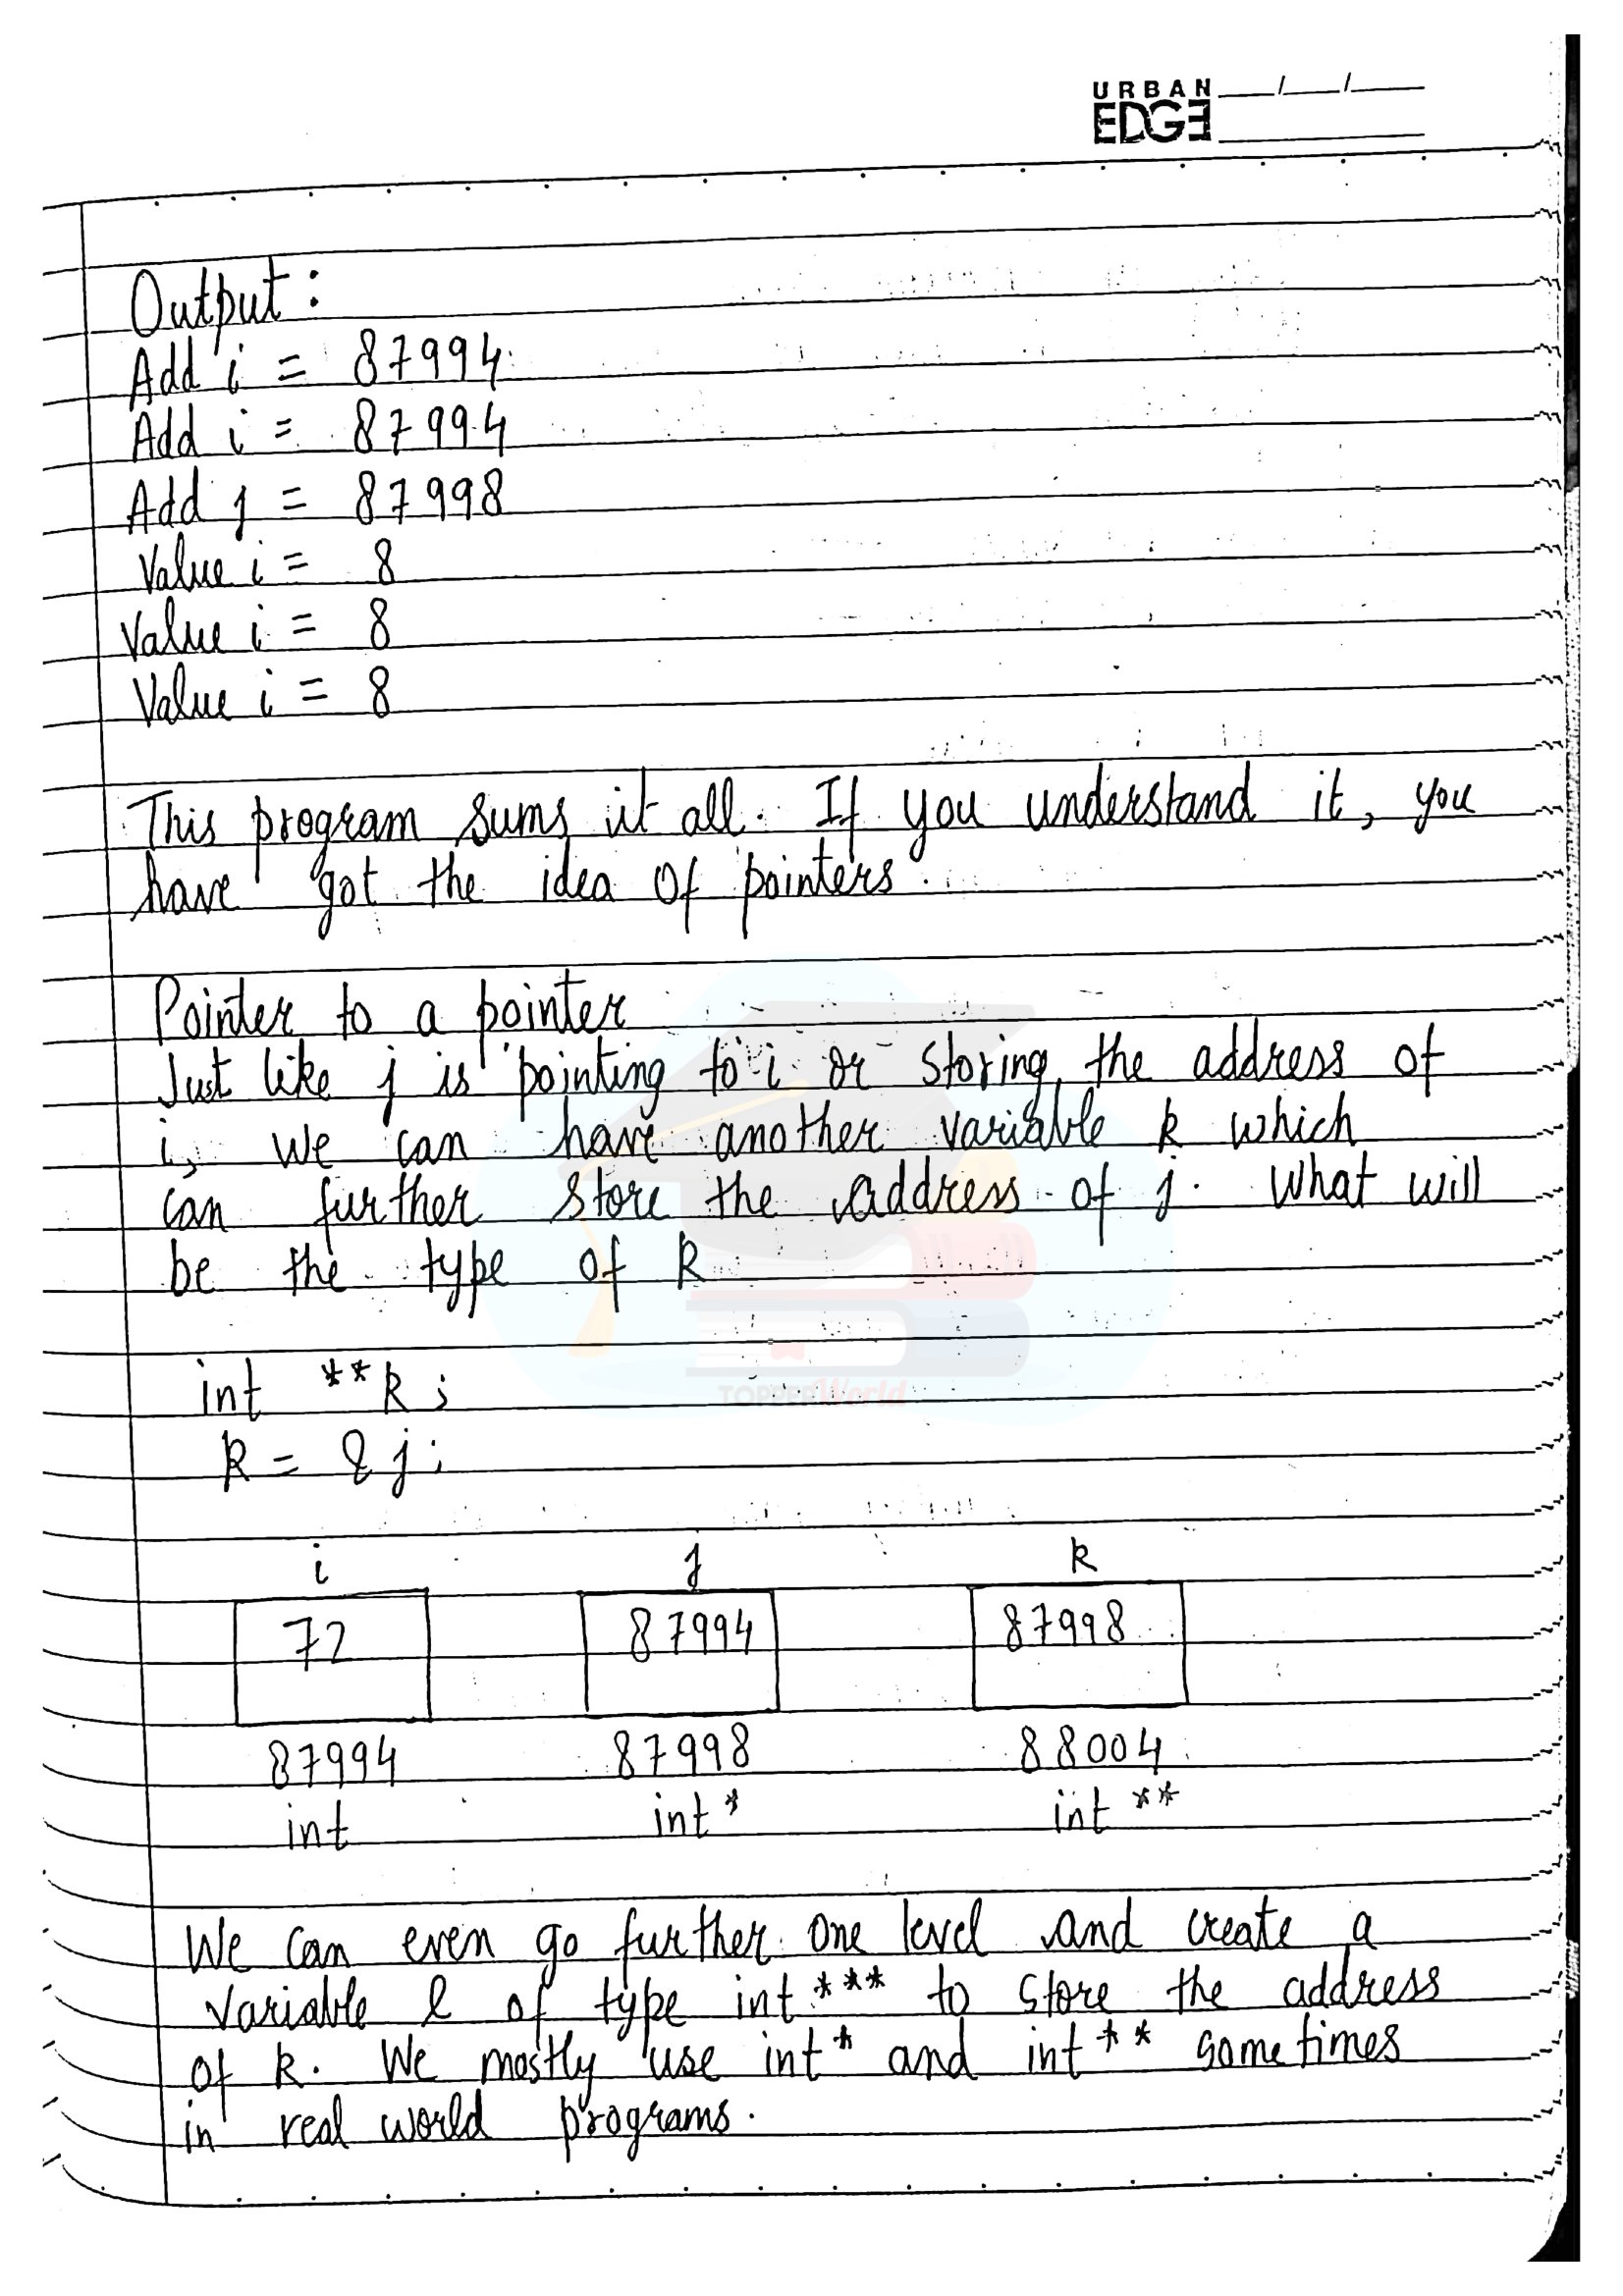 URBAN
EDGE
Output :
Add i = 87994
Add i = 87994
Add j = 87998
Value i = 8
Value i = 8
Value i = 8
This program sums it all. If you understand it, you
have got the idea of pointers.
Pointer to a pointer
Just like j is pointing to i or storing the address of
i, we can have another variable k which
can further store the address of j. What will
be the type of k
int **k ;
k = &j ;
TOPPERWorld
i j k
72 87994 87998
87994 87998 88004
int int* int **
We can even go further one level and create a
variable l of type int*** to store the address
of k. We mostly use int* and int** sometimes
in real world programs.